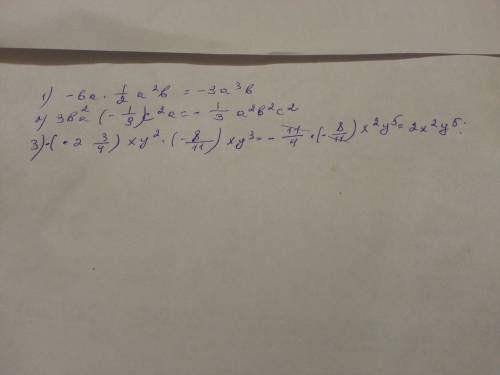 1) -6a · 1/2 a²b = -3a³b
2) 3ba² (-1/9)c²a = - 1/3 a²b²c²
3) -( · 2 3/4) xy² · (-8/11) xy³ = - 11/4 · (-8/11) x²y⁵ = 2x²y⁵.